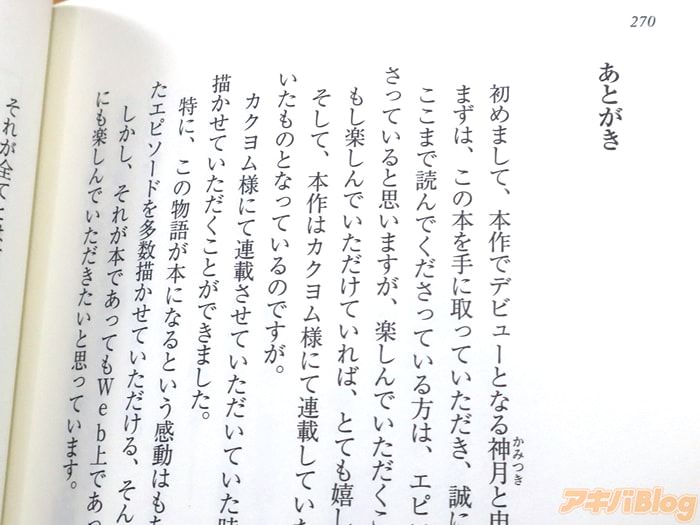 270
あとがき
初めまして、本作でデビューとなる神月と申
かみつき
まずは、この本を手に取っていただき、誠に
ここまで読んでくださっている方は、エピ
さっていると思いますが、楽しんでいただくこ
もし楽しんでいただけていれば、とても嬉し
そして、本作はカクヨム様にて連載していた
いたものとなっているのですが。
カクヨム様にて連載させていただいていた時
描かせていただくことができました。
特に、この物語が本になるという感動はも
たエピソードを多数描かせていただける、そん
しかし、それが本であってもWeb上であっ
にも楽しんでいただきたいと思っています。
それが全て
アキバBlog